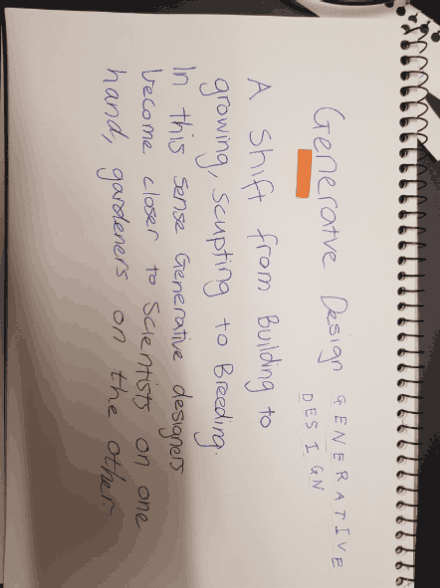 Generatve Design
GENERATIVE
DESIGN
A Shift from Building to
growing, scupting to Breeding.
In this sense Generative designers
become closer to Scientists on one
hand, gardeners on the other.